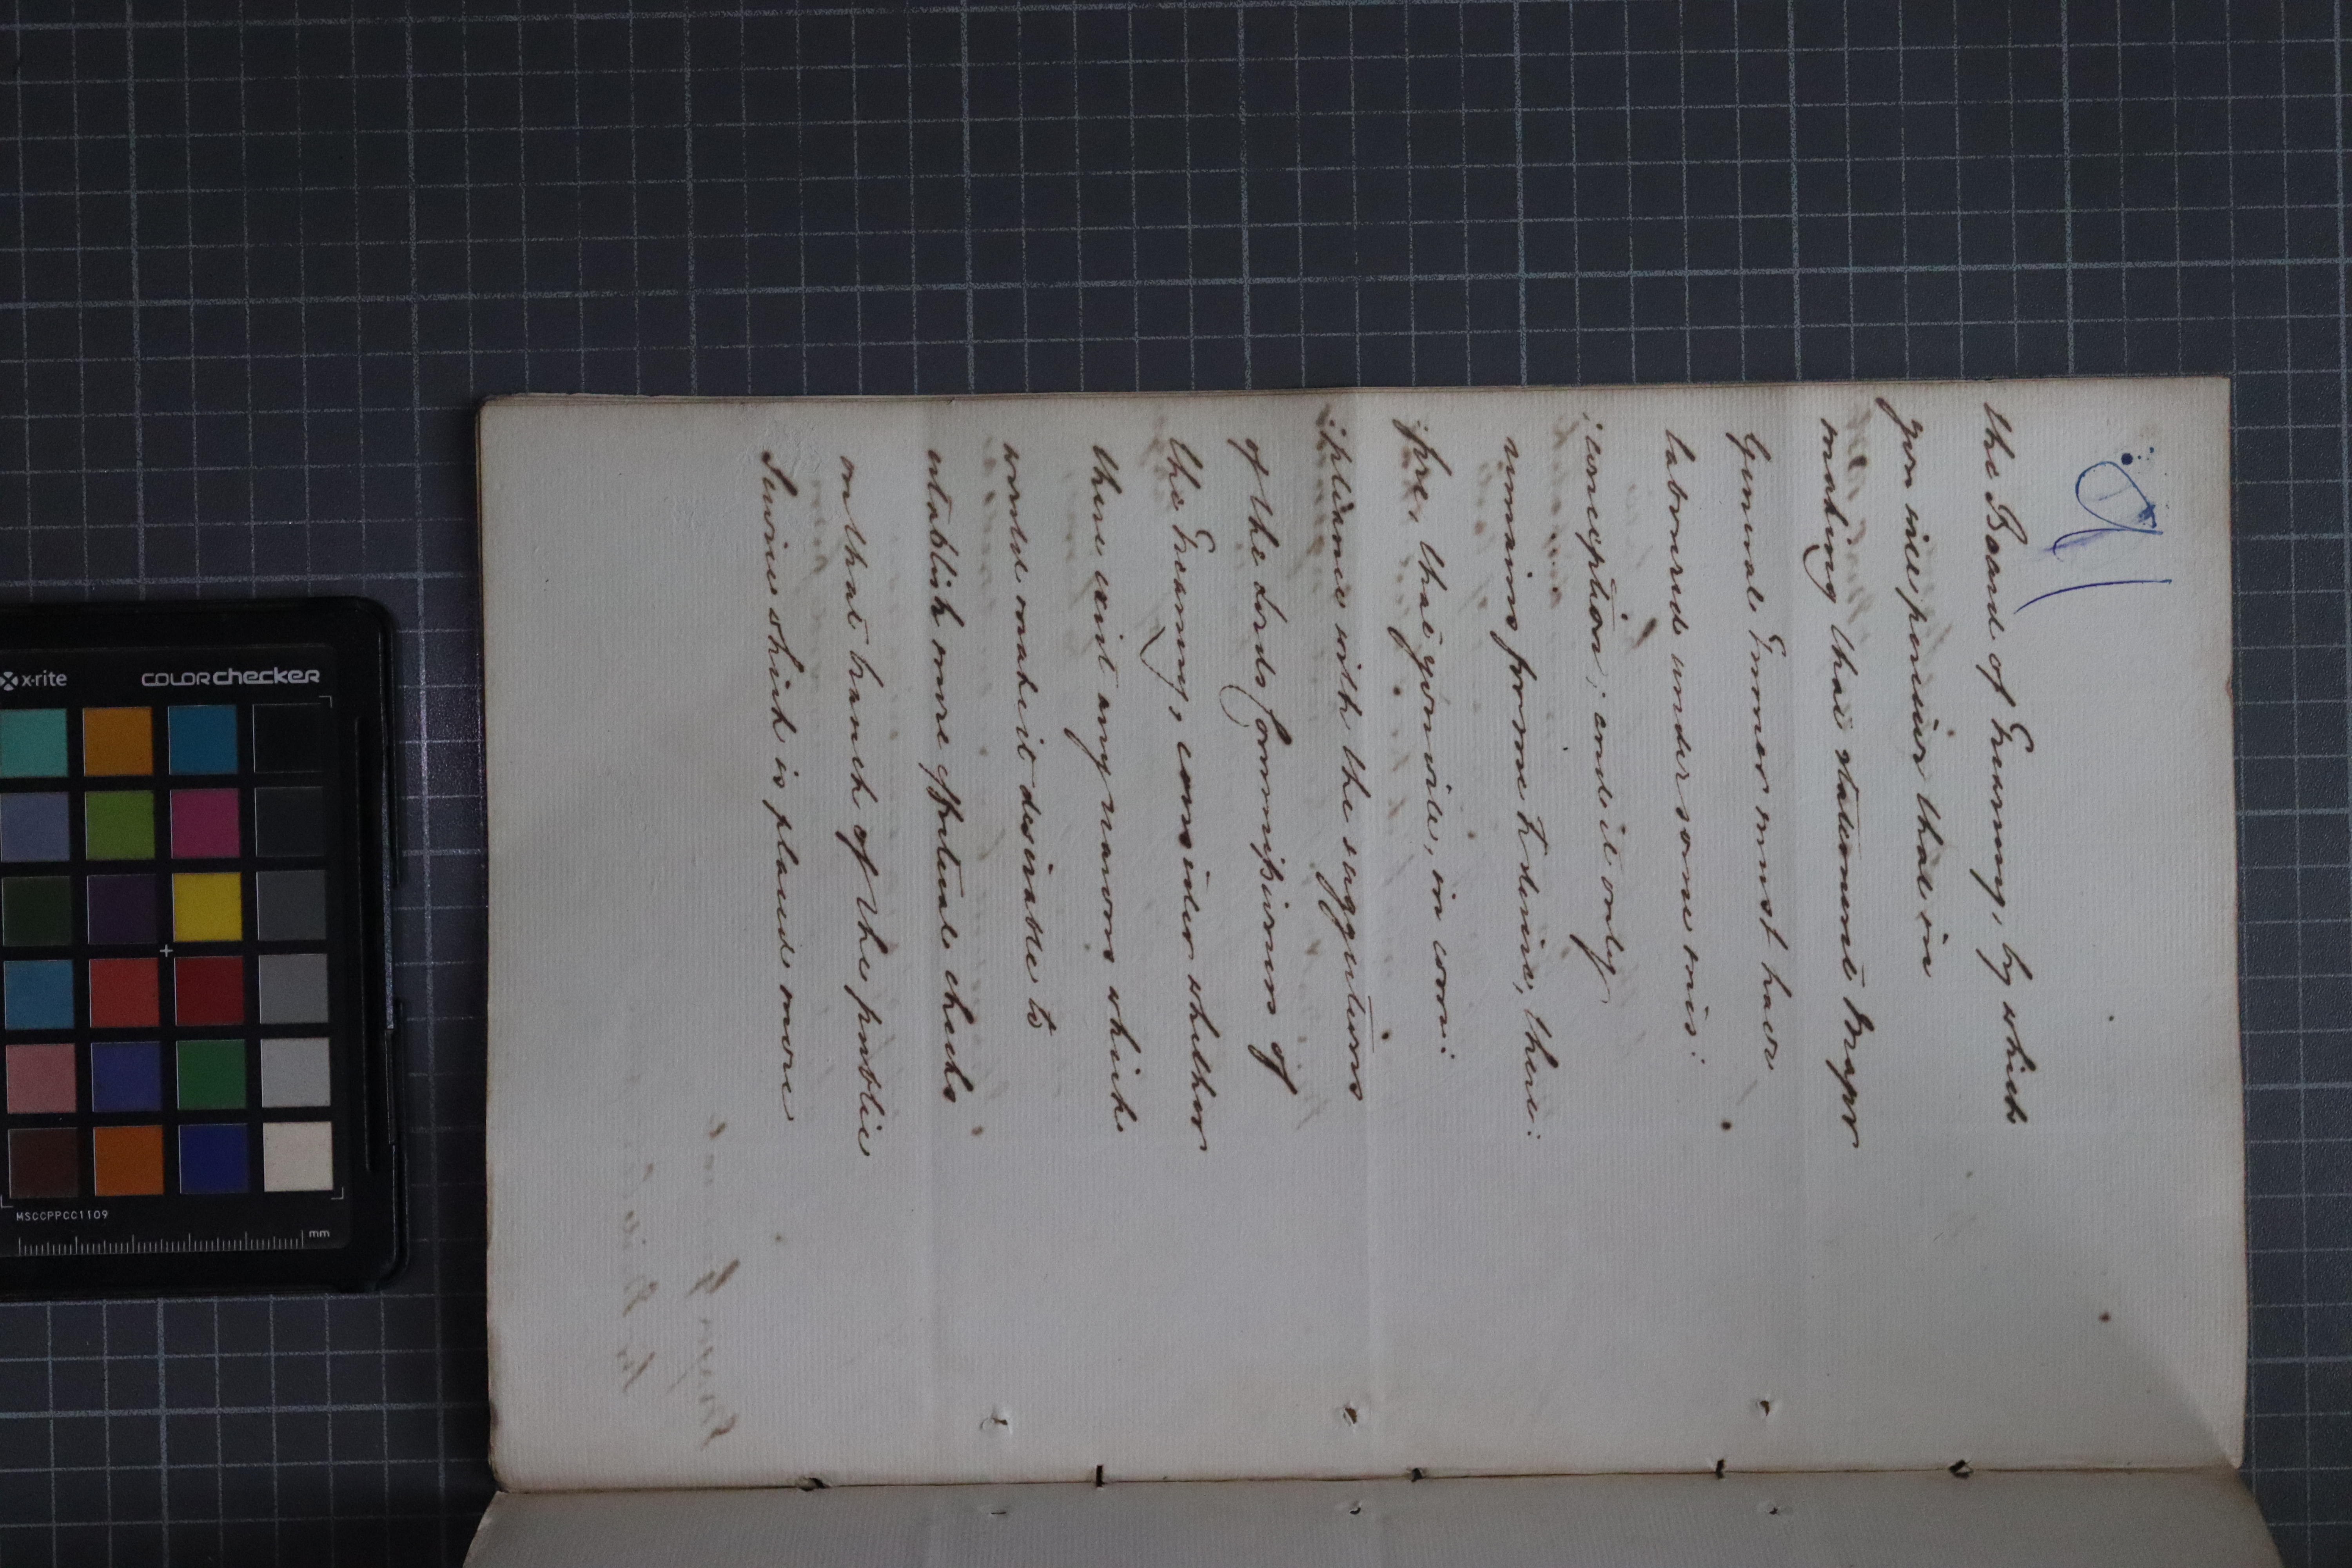 the Board of Treasury, by which
you will perceive that in
making that statement Major
General Turner must have
laboured under some mis:
:conception; and it only
remains for me to desire, there:
:fore that you will, in com:
:pliance with the suggestions
of the Lords Commissioners of
the Treasury, consider whether
there exist any reasons which
would make it desirable to
establish more effectual checks
on that branch of the public
Service which is placed more
x-rite
colorchecker
MSCCPPCC1109
mm